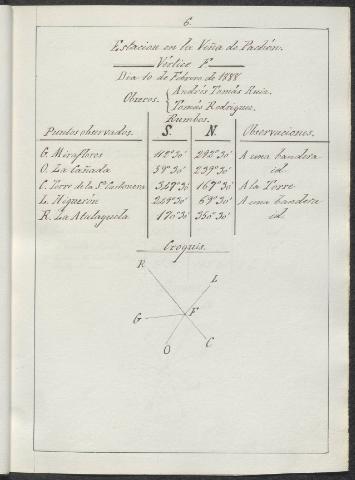 6.
Estacion en la Viña de Pachón.
Vértice F
Dia 10 de Febrero de 1888
Obreros. Andrés Tomás Ruiz.
Tomás Rodriguez.
Rumbos.
Puntos observados. S. N. Observaciones.
G. Miraflores 112°30' 292°30' A una bandera
O. La Cañada 59°30' 239°30' id.
C. Torre de la Sª Cartonera 347°30' 167°30' A la Torre
L. Niguerón 249°30' 69°30' A una bandera
R. La Atalayuela 170°30' 350°30' id.
Croquis.
R
L
F
G
O
C